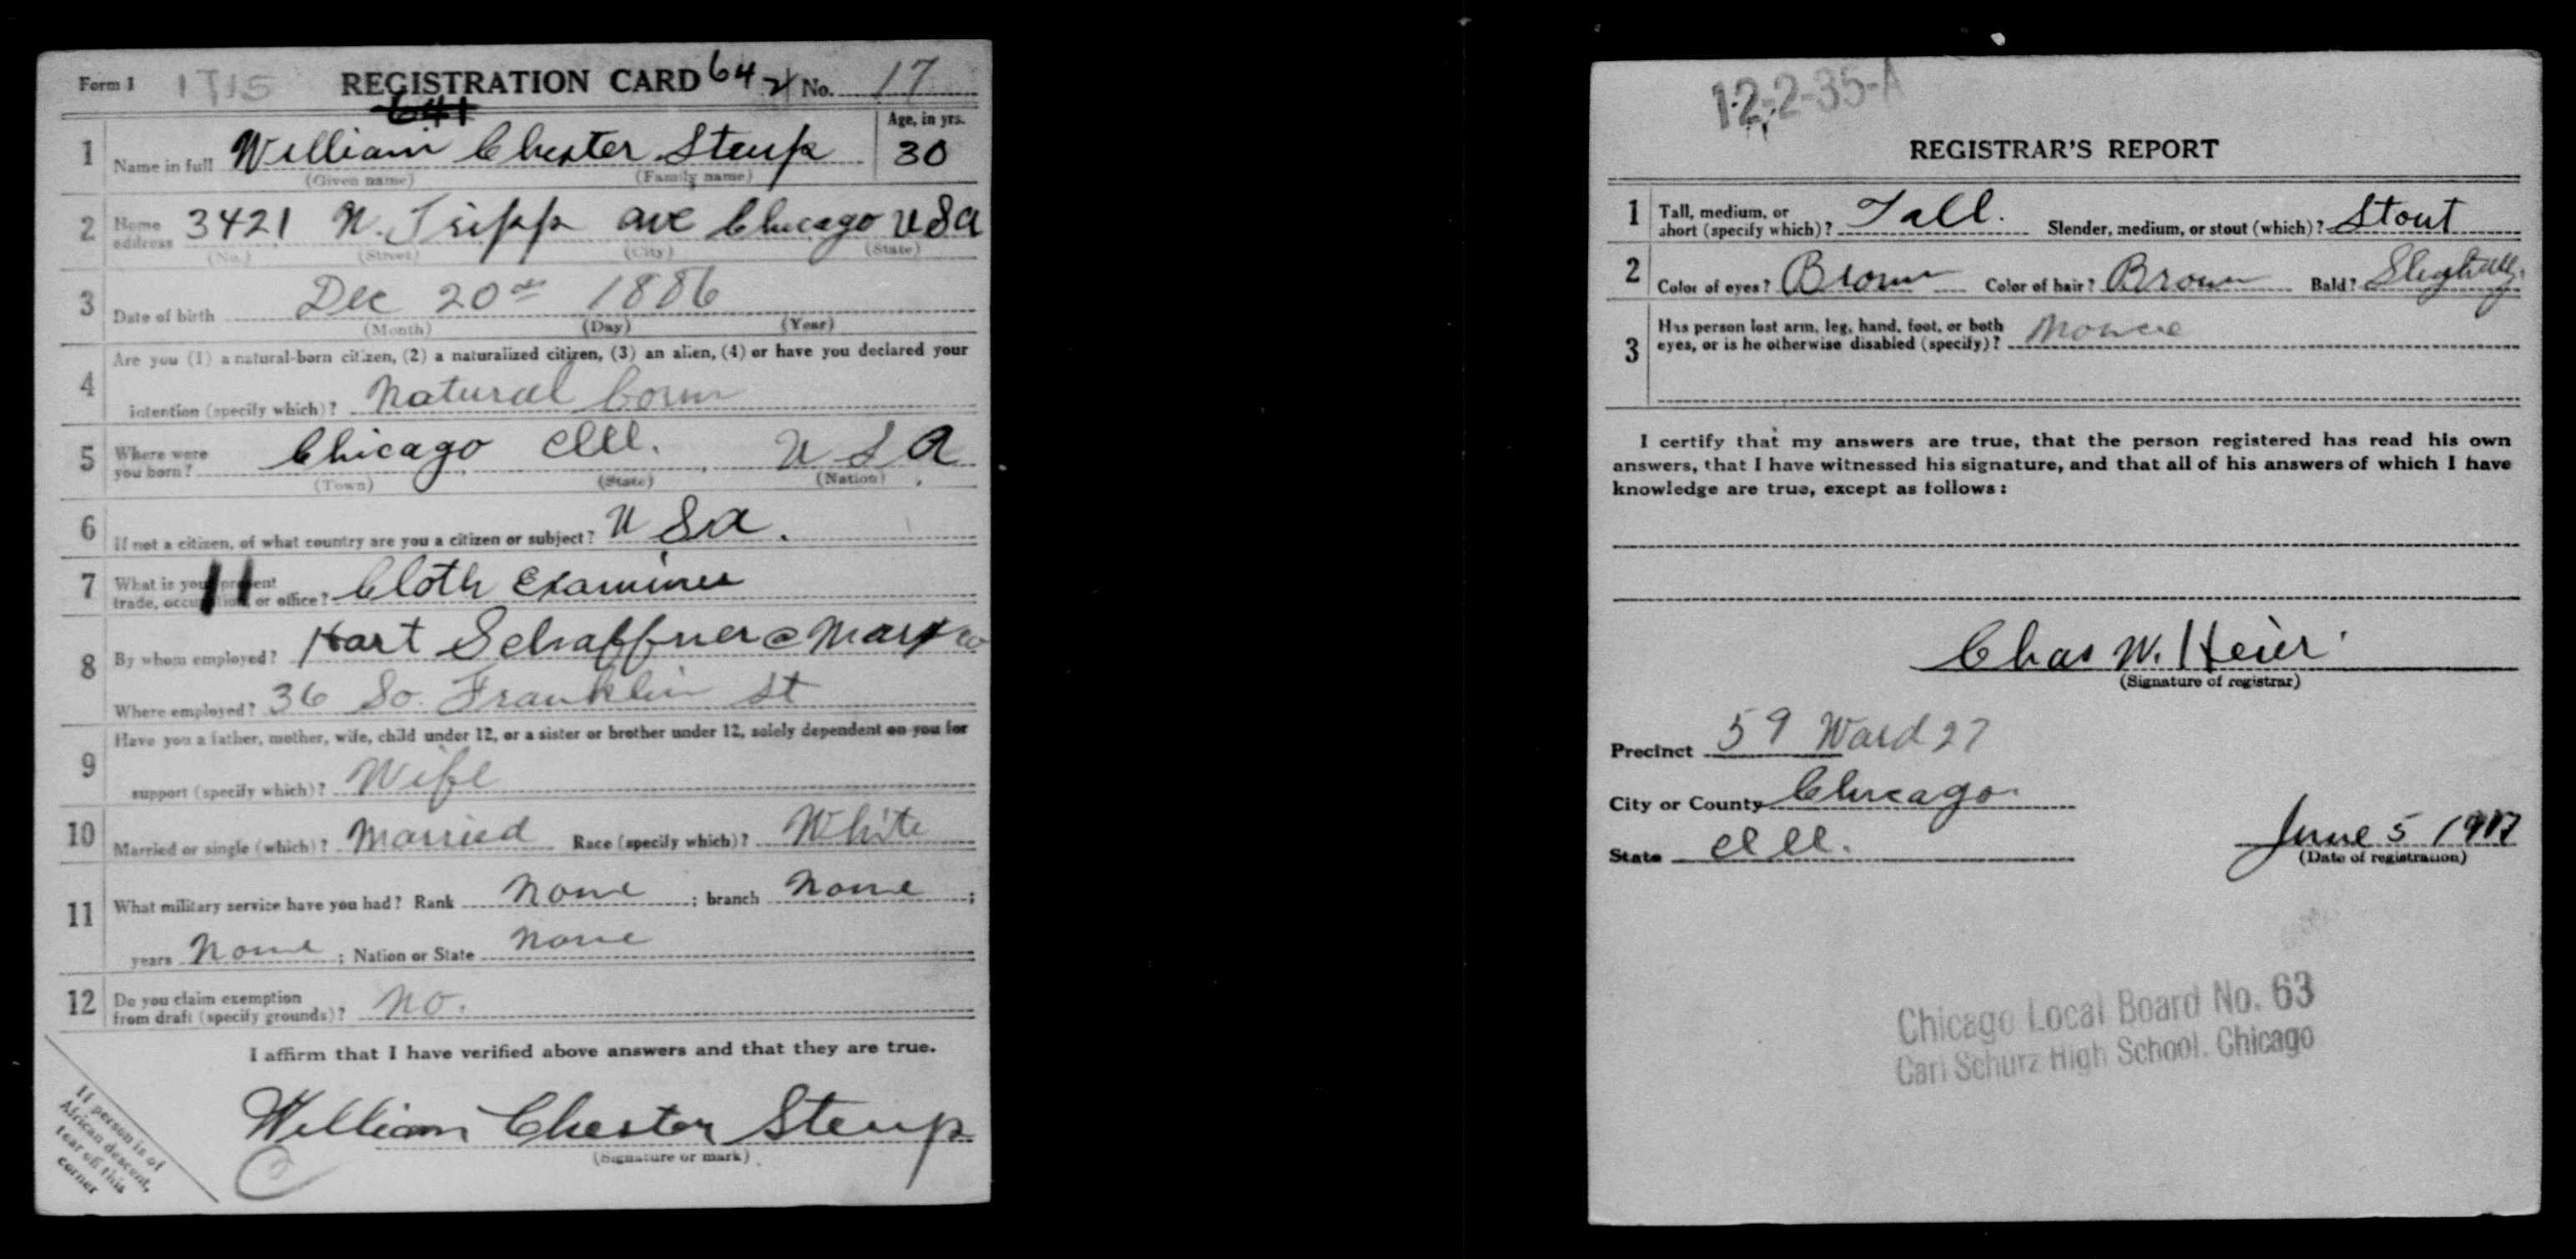 Form 1 1715 REGISTRATION CARD 642 No. 17
641
Age, in yrs.
1 Name in full William Chester Steup 30
(Given name) (Family name)
2 Home address 3421 N. Tripp ave Chicago USA
(No.) (Street) (City) (State)
3 Date of birth Dec 20th 1886
(Month) (Day) (Year)
Are you (1) a natural-born citizen, (2) a naturalized citizen, (3) an alien, (4) or have you declared your
4 intention (specify which)? Natural born
5 Where were you born? Chicago Ill. U S A
(Town) (State) (Nation)
6 If not a citizen, of what country are you a citizen or subject? U S a.
7 What is your present
trade, occupation, or office? Cloth Examiner
11
8 By whom employed? Hart Schaffner & Marx Co
Where employed? 36 So. Franklin St
Have you a father, mother, wife, child under 12, or a sister or brother under 12, solely dependent on you for
9 support (specify which)? Wife
10 Married or single (which)? Married Race (specify which)? White
11 What military service have you had? Rank None ; branch None ;
years None ; Nation or State None
12 Do you claim exemption
from draft (specify grounds)? No.
I affirm that I have verified above answers and that they are true.
William Chester Steup
(Signature or mark)
If person is of
African descent,
tear off this
corner
12-2-35-A
REGISTRAR'S REPORT
1 Tall, medium, or
short (specify which)? Tall. Slender, medium, or stout (which)? Stout
2 Color of eyes? Brown Color of hair? Brown Bald? Slightly
3 Has person lost arm, leg, hand, foot, or both
eyes, or is he otherwise disabled (specify)? None
I certify that my answers are true, that the person registered has read his own
answers, that I have witnessed his signature, and that all of his answers of which I have
knowledge are true, except as follows:
Chas W. Heier
(Signature of registrar)
Precinct 59 Ward 27
City or County Chicago.
State Ill. June 5 1917
(Date of registration)
Chicago Local Board No. 63
Carl Schurz High School. Chicago